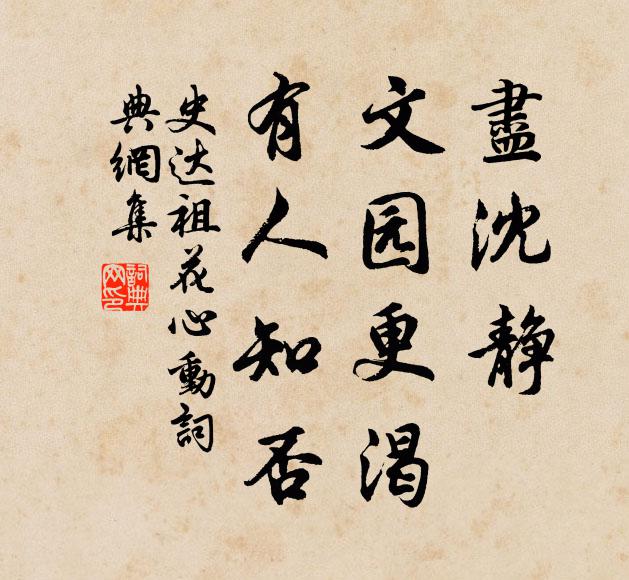 盡沈静
文园更渴
有人知否
史达祖花心動詞
典網集
詞典
网印